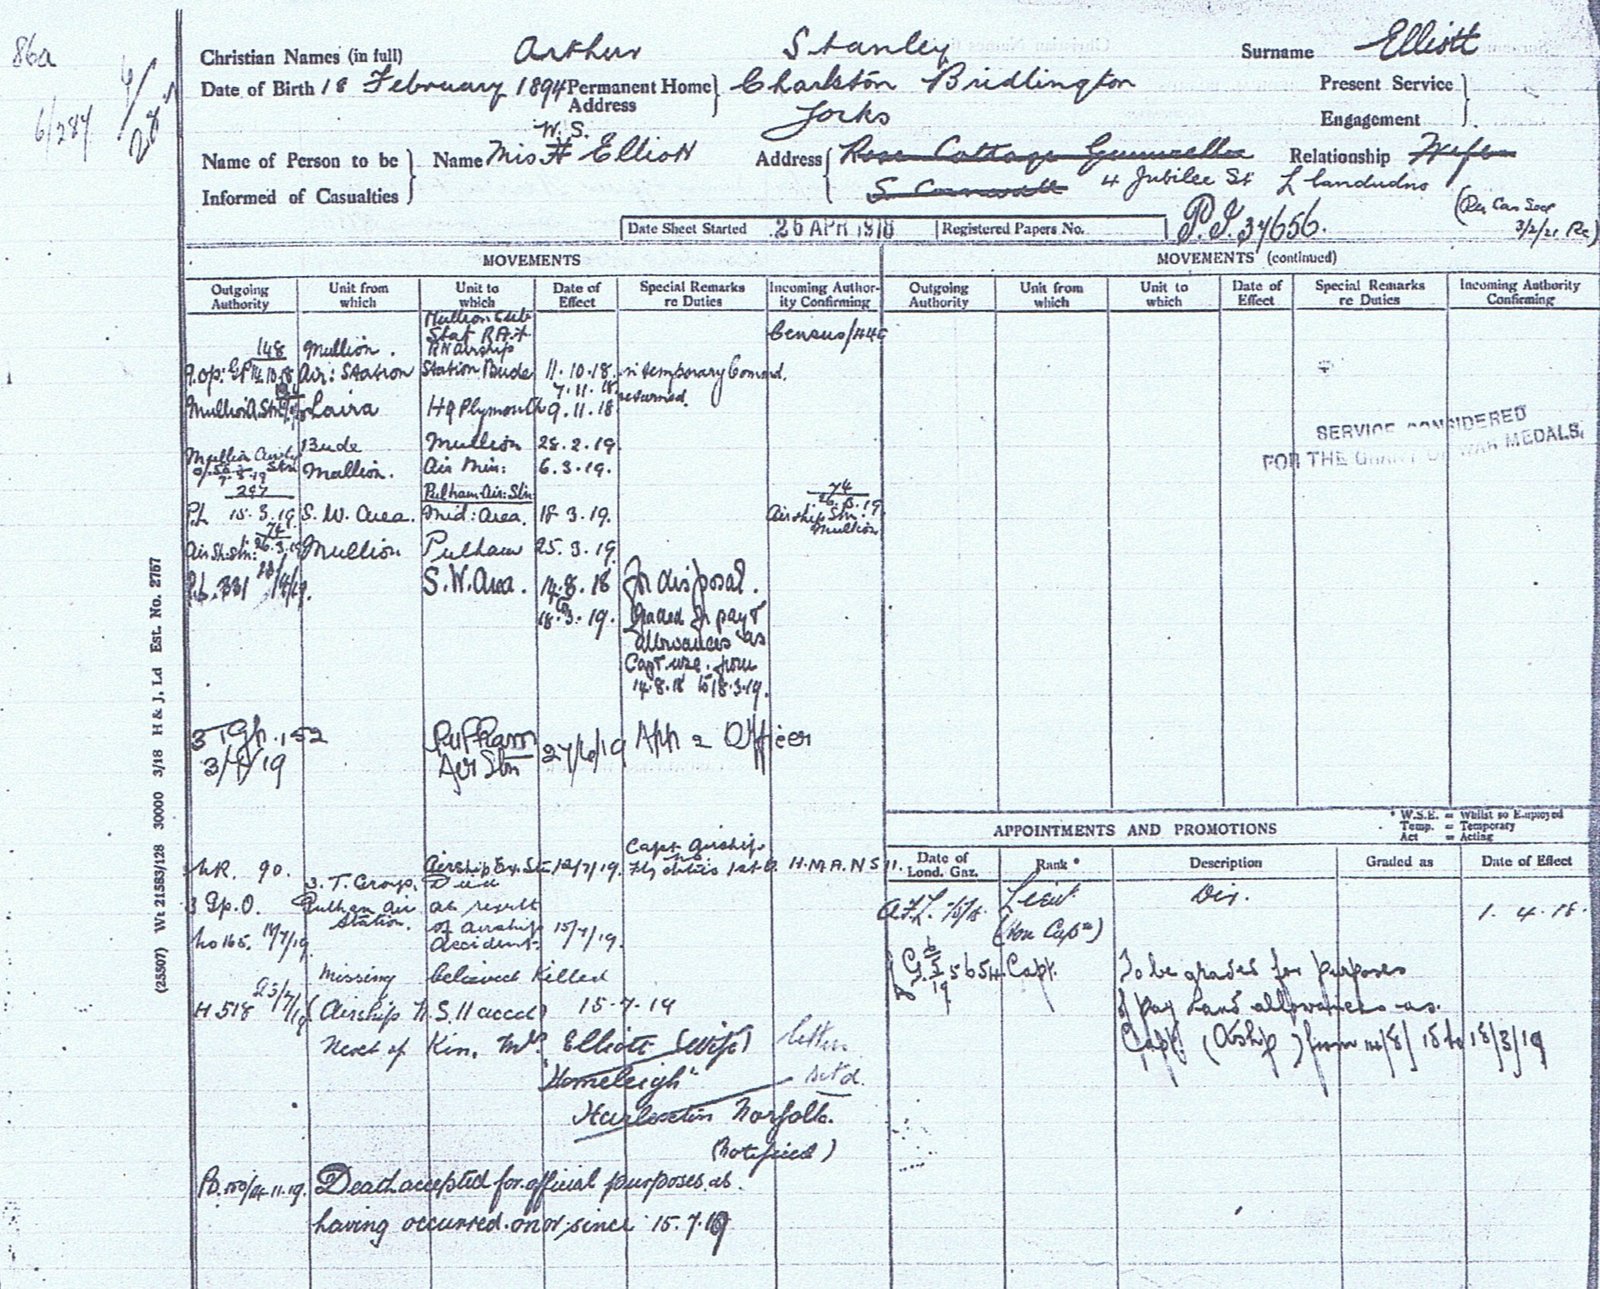 86a
6/284
Christian Names (in full) Arthur Stanley Surname Elliott
Date of Birth 18 February 1894 Permanent Home Address Charlston Bridlington
Yorks
Present Service
Engagement
W. S.
Name of Person to be Informed of Casualties
Name Mrs H Elliott Address Rose Cottage Gunwalloe Relationship Wife
S Cornwall 4 Jubilee St Llandudno
3/2/21
Date Sheet Started 26 APR 1918 Registered Papers No. P.I. 34656.
MOVEMENTS
MOVEMENTS (continued)
Outgoing Authority Unit from which Unit to which Date of Effect Special Remarks re Duties Incoming Authority Confirming
Outgoing Authority Unit from which Unit to which Date of Effect Special Remarks re Duties Incoming Authority Confirming
Mullion Sub
Stat RAF
RN Airship
Census/446
148 Mullion.
14.10.18 Air: Station Station Bude 11.10.18. in temporary Command.
7.11.18 returned.
Laira HQ Plymouth 9.11.18
Bude Mullion 28.2.19.
Mullion. Air Min: 6.3.19.
297
Pulham Air: Stn
74
26.3.19
P.L 15.3.19. S.W. Area. Mid: Area. 18 3.19. Airship Stn: Mullion
74
26.3.19 Mullion Pulham 25.3.19.
P.L. 331 S.W. Area. 14.8.18 For disposal.
18.3.19. Graded for pay &
allowances as
Capt. from
14.8.18 to 18.3.19.
3 T Gp. 152 Pulham 27/6/19 Officer
Air Stn
SERVICE CONSIDERED
FOR THE GRANT OF WAR MEDALS.
(25507) Wt 21583/128 30000 3/18 H & J, Ld Est. No. 2757
* W.S.E. = Whilst so Employed
Temp. = Temporary
Act = Acting
APPOINTMENTS AND PROMOTIONS
Date of Lond. Gaz. Rank * Description Graded as Date of Effect
Lieut 1.4.18.
(Hon Capt)
Capt. To be graded for purposes
of pay and allowances as
Capt. (A'ship) from 14/8/18 to 18/3/19
Capt. Airship
90. Airship Exp. Stn 12/7/19. Fly duties 1st O. H.M.A. N S 11.
3. T. Group. Died
3 Gp. O. Pulham Air as result
Station. of airship 15/7/19.
No 165. 17/7/19. accident.
Missing believed killed
H 518 (Airship N.S. 11 accdt) 15-7-19
Next of Kin. Mrs. Elliott (wife) letter
"Homeleigh" sent d.
Harleston Norfolk.
(notified)
Death accepted for official purposes as
having occurred on or since 15.7.19